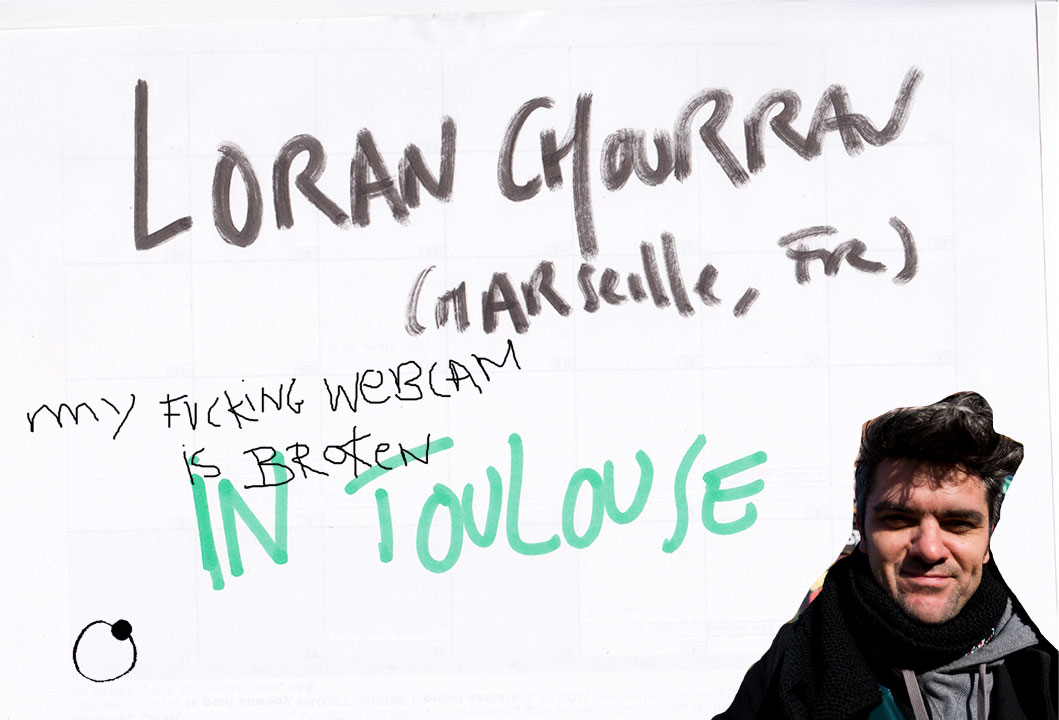 LORAN CHOURRAU
(MARseille, FR)
my FUCKING WEBCAM
is BROKEN
IN TOULOUSE